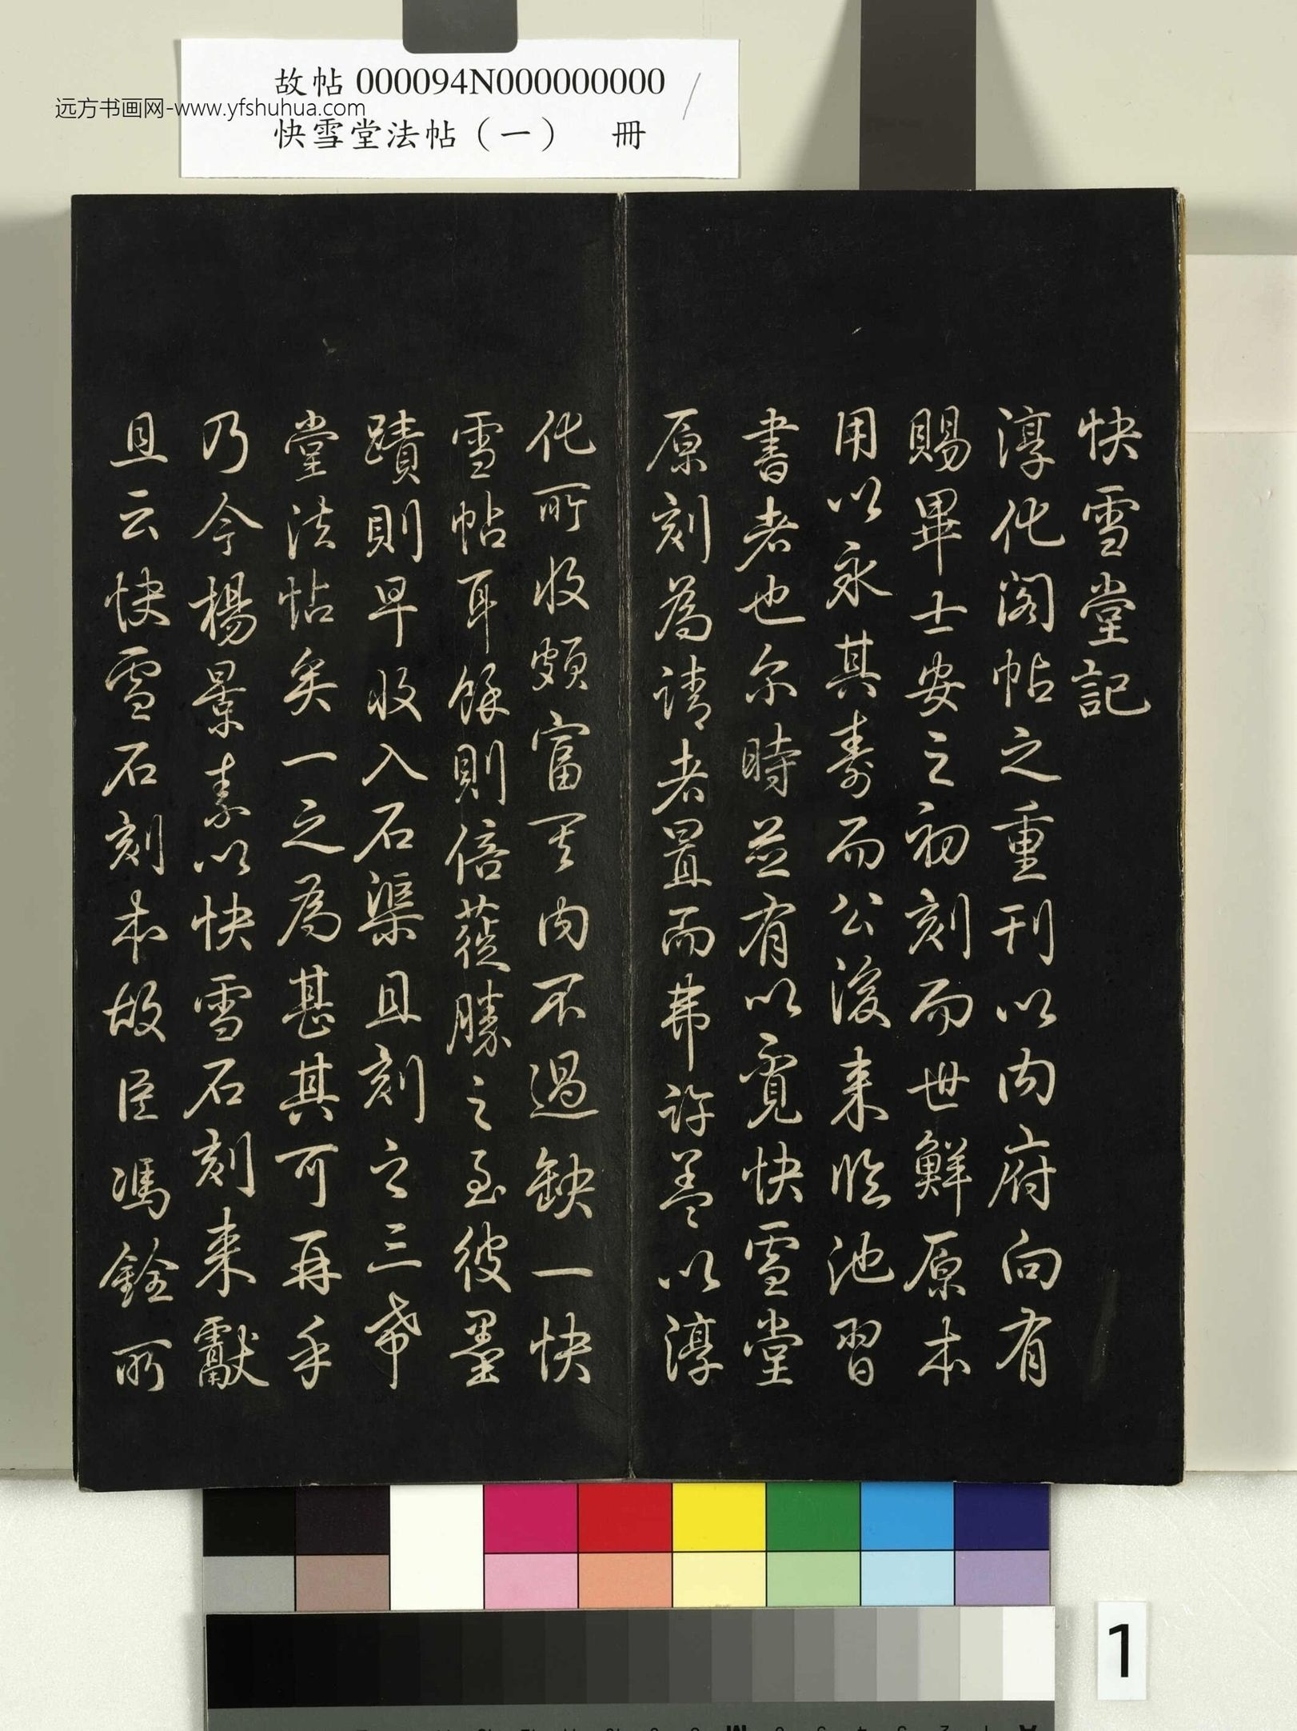 故帖 000094N000000000
远方书画网-www.yfshuhua.com
快雪堂法帖（一） 冊
快雪堂記
淳化閣帖之重刊以内府向有
賜畢士安之初刻而世鮮原本
用以永其壽而公後来臨池習
書者也尔時並有以覓快雪堂
原刻為請者置而弗許盖以淳
化所收頗富其内不過缺一快
雪帖耳餘則倍蓰勝之至彼墨
蹟則早收入石渠且刻之三希
堂法帖矣一之為甚其可再乎
乃今楊景素以快雪石刻来獻
且云快雪石刻本故臣馮銓所
1